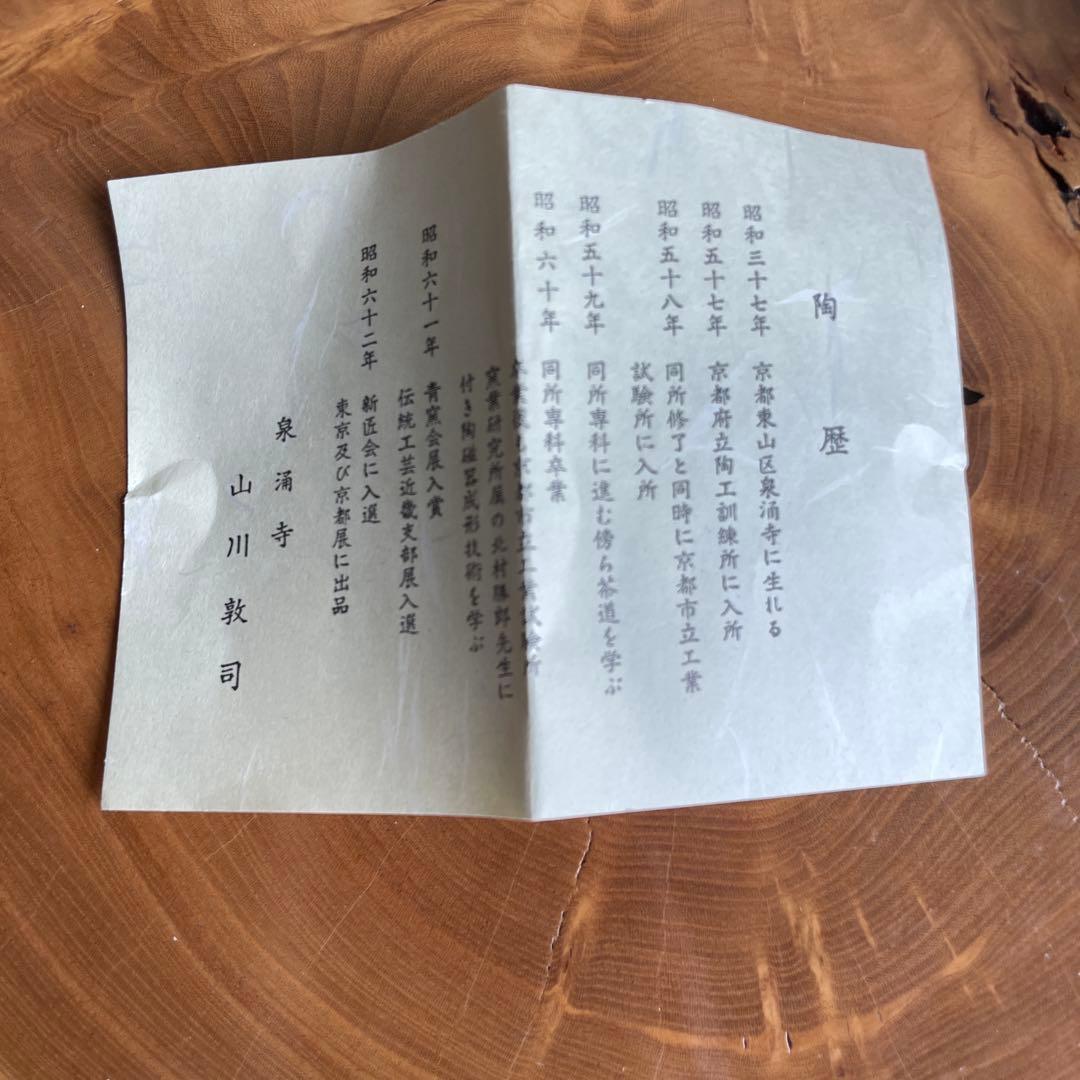 陶歴
昭和三十七年 京都東山区泉涌寺に生れる
昭和五十七年 京都府立陶工訓練所に入所
昭和五十八年 同所修了と同時に京都市立工業
試験所に入所
昭和五十九年 同所専科に進む傍ら茶道を学ぶ
昭和六十年 同所専科卒業
卒業後も京都市立工業試験所
窯業研究所属の北村勝郎先生に
付き陶磁器成形技術を学ぶ
昭和六十一年 青窯会展入賞
伝統工芸近畿支部展入選
昭和六十二年 新匠会に入選
東京及び京都展に出品
泉涌寺
山川敦司